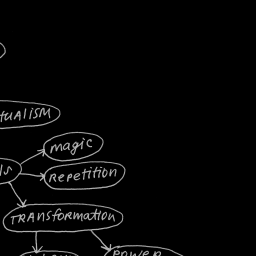 TUALISM
magic
REPETITION
LS
TRANSFORMATION
POWER